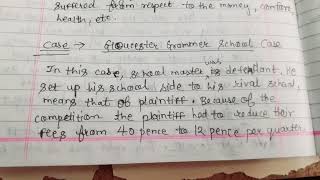 suffered from respect to the money, comfort
health, etc.
Case → Gloucester Grammer School Case
In this case, school master was is defendant. He
set up his school side to his rival school,
means that of plaintiff. Because of the
competition the plaintiff had to reduce their
fees from 40 pence to 12 pence per quarter.